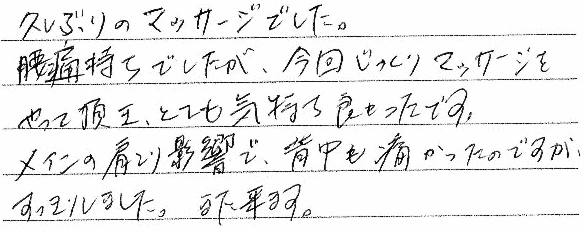 久しぶりのマッサージでした。
腰痛持ちでしたが、今回じっくりマッサージを
やって頂き、とても気持ち良かったです。
メインの肩こり影響で、背中も痛かったのですが、
すっきりしました。また来ます。